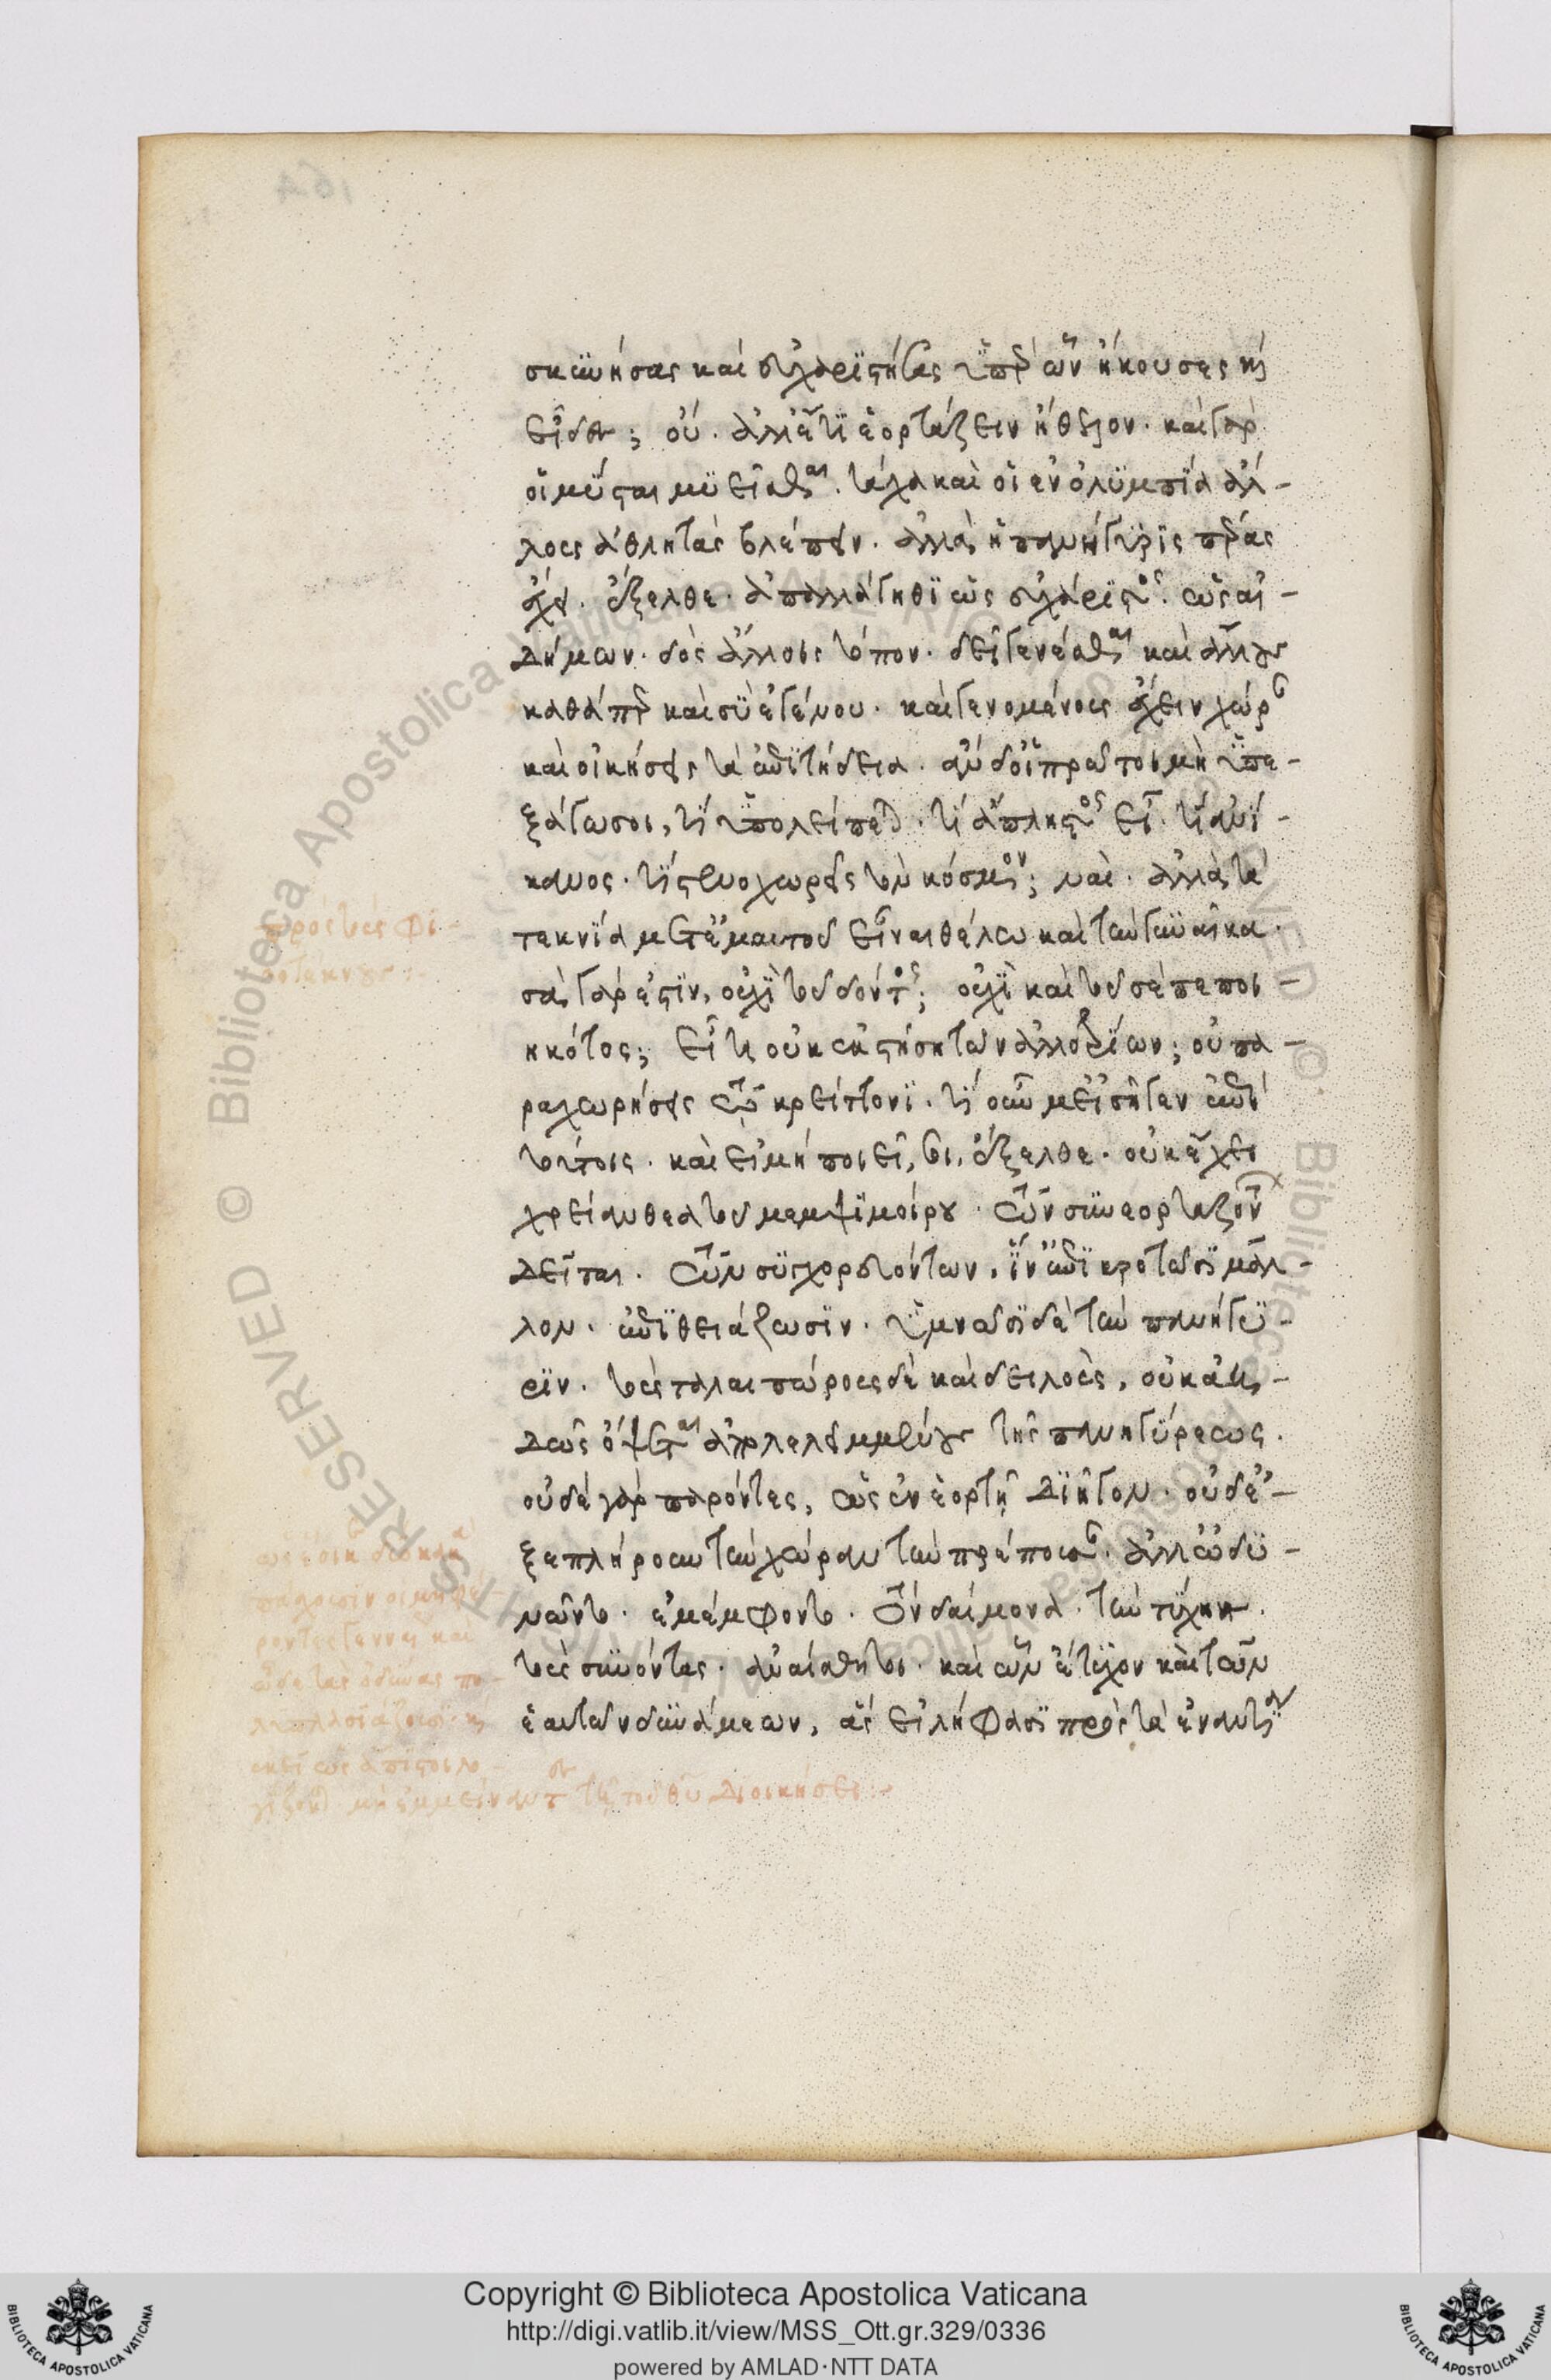 σκυνήσας καὶ εὐχαριστήσας ὑπὲρ ὧν ἤκουσας κ(αὶ)
εἶδες; οὔ. ἀλλ' ἔτι ἑορτάζειν ἤθελον. καὶ γὰρ
οἱ μύσται μυεῖσθαι. τάχα καὶ οἱ ἐν ὀλυμπίᾳ ἄλ-
λους ἀθλητὰς βλέπειν. ἀλλὰ ἡ πανήγυρις πέρας
ἔχει. ἔξελθε. ἀπαλλάγηθι ὡς εὐχάριστος. ὡς αἰ-
δήμων. δὸς ἄλλοις τόπον. δεῖ γενέσθαι καὶ ἄλλους
καθάπερ καὶ σὺ ἐγένου. καὶ γενομένους ἔχειν χώραν
καὶ οἰκήσεις τὰ ἐπιτήδεια. ἂν δ' οἱ πρῶτοι μὴ ὑπε-
ξάγωσοι, τί ὑπολείπεται. τί ἄπληστος εἶ. τί ἀνί-
κανος. τί στενοχωρεῖς τὸν κόσμον; ναί. ἀλλὰ τὰ
τεκνία μετ' ἐμαυτοῦ εἶναι θέλω καὶ τὴν γυναῖκα.
σὰ γάρ ἐστιν, οὐχὶ τοῦ δόντος; οὐχὶ καὶ τοῦ σε πεποι-
ηκότος; εἶτ' οὐκ ἐκστήσῃ τῶν ἀλλοτρίων; οὐ πα-
ραχωρήσεις τῷ κρείττονι. τί οὖν μ' εἰσῆγεν ἐπὶ
τούτοις. καὶ εἰ μὴ ποιεῖ σοι, ἔξελθε. οὐκ ἔχει
χρείαν θεατοῦ μεμψιμοίρου. τῶν συνεορταζόντων
δεῖται. τῶν συγχορευόντων, ἵν' ἐπικροτῶσι μᾶλ-
λον. ἐπιθειάζωσιν. ὑμνῶσι δὲ τὴν πανήγυ-
ριν. τοὺς ταλαιπώρους δὲ καὶ δειλοὺς, οὐκ ἀη-
δῶς ὄψεται ἀπολελειμμένους τῆς πανηγύρεως.
οὐδὲ γὰρ παρόντες, ὡς ἐν ἑορτῇ διῆγον. οὐδ' ἐ-
ξεπλήρουν τὴν χώραν τὴν πρέπουσαν. ἀλλ' ὠδυ-
νῶντο. ἐμέμφοντο. τὸν δαίμονα. τὴν τύχην.
τοὺς συνόντας. ἀναίσθητοι. καὶ ὧν ἔτυχον καὶ τῶν
ἑαυτῶν δυνάμεων, ἃς εἰλήφασι πρὸς τὰ ἐναντία
πρὸς τοὺς φι-
λοτέκνους:
Copyright © Biblioteca Apostolica Vaticana
http://digi.vatlib.it/view/MSS_Ott.gr.329/0336
powered by AMLAD·NTT DATA